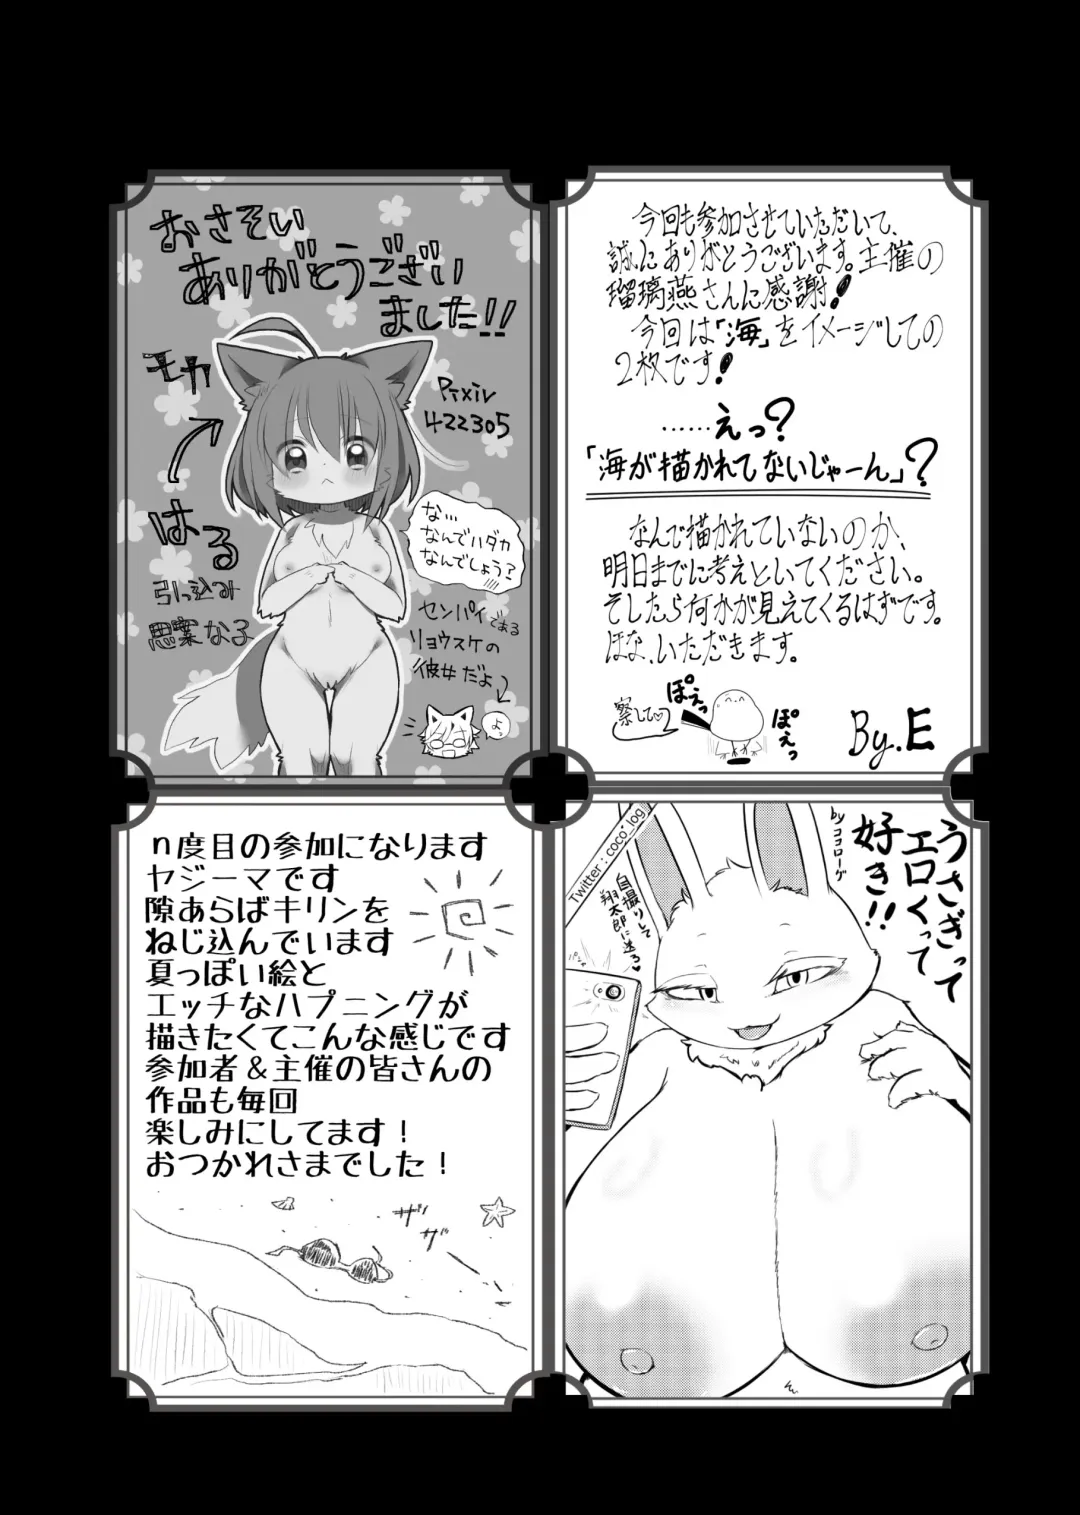 おさそい
ありがとうござい
ました!!
モカ
はる
引っ込み
思案な子
Pixiv
422305
な…
なんでハダカ
なんでしょう?
センパイである
リョウスケの
彼女だよ
よっ
今回も参加させていただいて、
誠にありがとうございます。主催の
瑠璃燕さんに感謝!
今回は「海」をイメージしての
2枚です!
……えっ?
「海が描かれてないじゃーん」?
なんで描かれていないのか、
明日までに考えといてください。
そしたら何かが見えてくるはずです。
ほな、いただきます。
察して♡
ぽえっ
ぽえっ
By.E
n度目の参加になります
ヤジーマです
隙あらばキリンを
ねじ込んでいます
夏っぽい絵と
エッチなハプニングが
描きたくてこんな感じです
参加者&主催の皆さんの
作品も毎回
楽しみにしてます!
おつかれさまでした!
ザザ
うさぎって
エロくって
好き!!
byココローゲ
Twitter:coco_log
自撮りして
翔太郎に送ろ♥